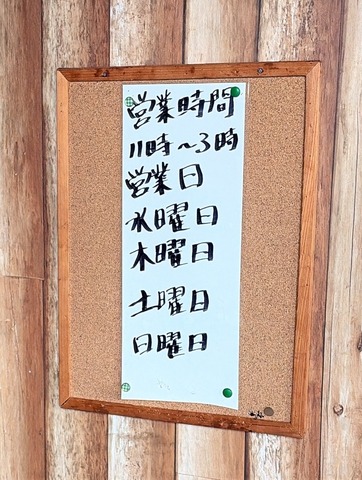 営業時間
11時～3時
営業日
水曜日
木曜日
土曜日
日曜日